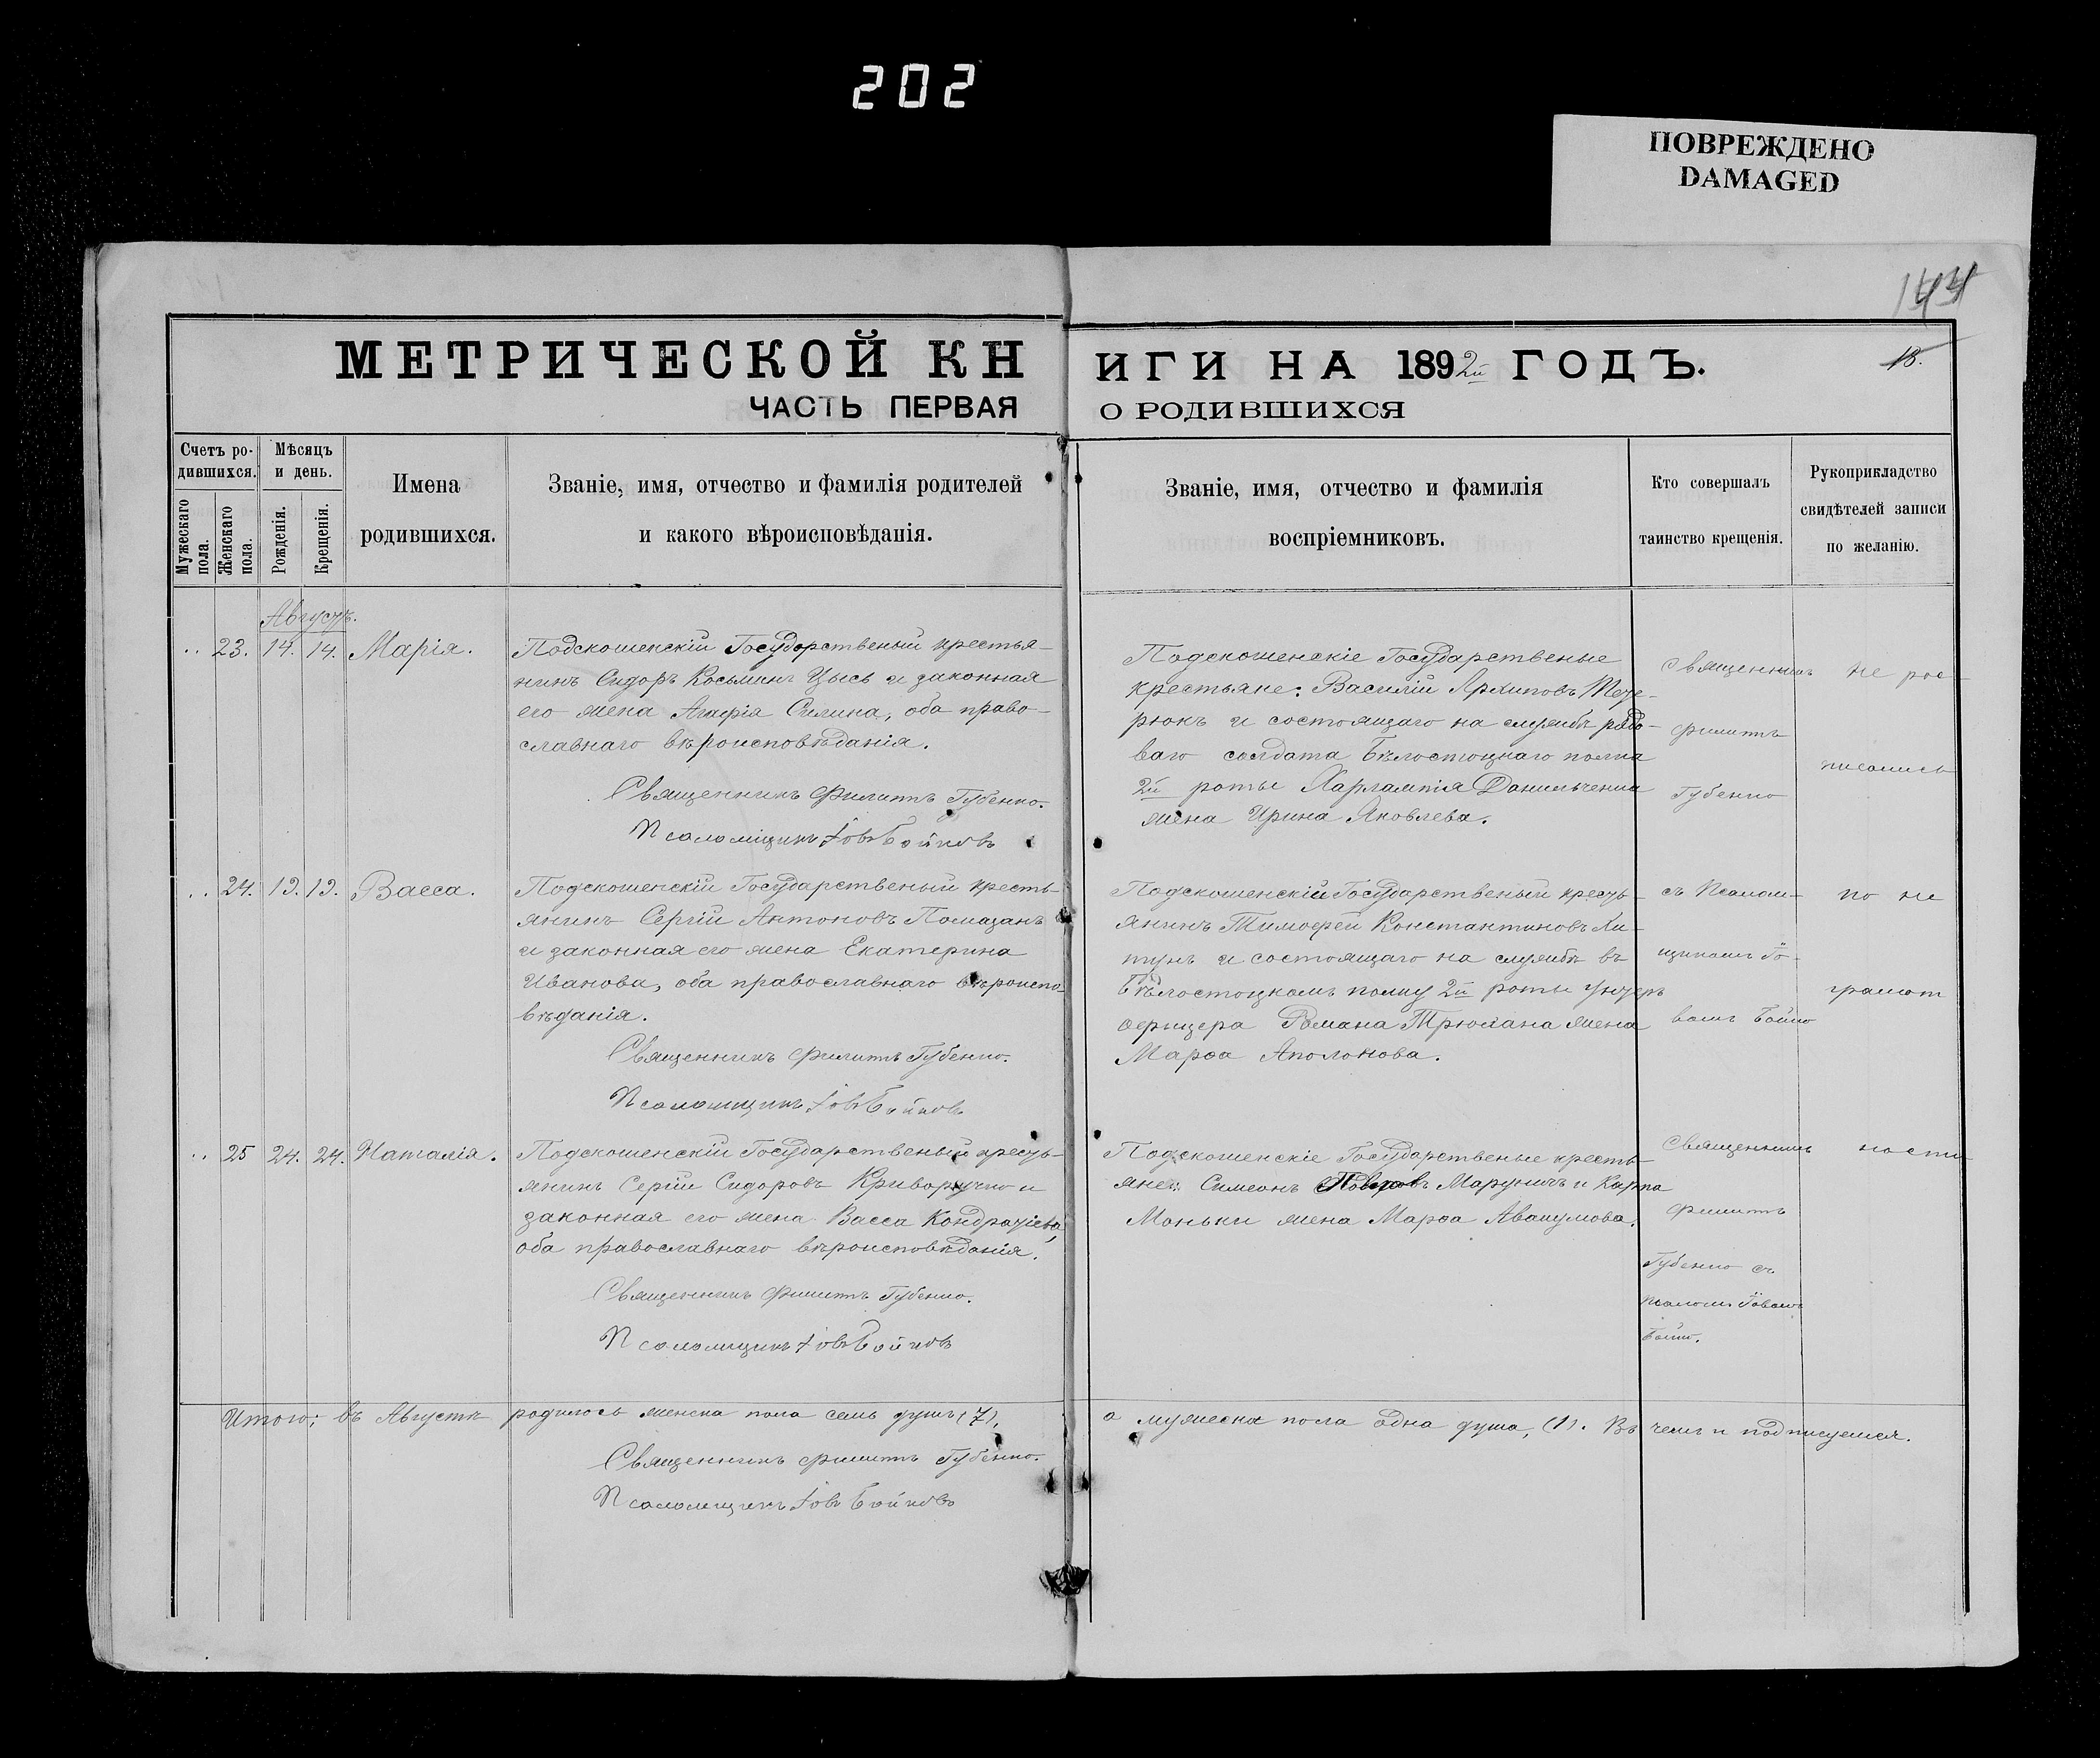 202
ПОВРЕЖДЕНО
DAMAGED
144
МЕТРИЧЕСКОЙ КНИГИ НА 1892й ГОДЪ.
18.
ЧАСТЬ ПЕРВАЯ О РОДИВШИХСЯ
Счетъ ро-
дившихся.
Мужескаго пола.
Женскаго пола.
Мѣсяцъ
и день.
Рожденія.
Крещенія.
Имена
родившихся.
Званіе, имя, отчество и фамилія родителей
и какого вѣроисповѣданія.
Званіе, имя, отчество и фамилія
воспріемниковъ.
Кто совершалъ
таинство крещенія.
Рукоприкладство
свидѣтелей записи
по желанію.
Августъ.
23. 14. 14. Марія.
Подскошенскій Государственый крестья-
нинъ Сидоръ Косьминъ Цысь и законная
его жена Агафія Силина, оба право-
славнаго вѣроисповѣданія.
Священникъ Филиппъ Губенко.
Псаломщикъ Іовъ Бойковъ
Подскошенскіе Государственые
крестьяне: Василій Архиповъ
рюкъ и состоящаго на службѣ рядо-
ваго солдата Бѣлостоцкаго полка
2й роты Харлампія Данильченка
жена Ирина Яковлева.
Священникъ
Филиппъ
Губенко
не рос-
писались
24. 19. 19. Васса.
Подскошенскій Государственый кресть-
янинъ Сергій Антоновъ Помазанъ
и законная его жена Екатерина
Иванова, оба православнаго вѣроиспо-
вѣданія.
Священникъ Филиппъ Губенко.
Псаломщикъ Іовъ Бойковъ
Подскошенскій Государственый кресть-
янинъ Тимофей Константиновъ Ли-
тунъ и состоящаго на службѣ въ
Бѣлостоцкомъ полку 2й роты унтеръ
офицера Романа Трюхана жена
Марѳа Аполонова.
съ Псалом-
щикомъ Іо-
вомъ Бойко
по не
грамот
25 24. 24. Наталія.
Подскошенскій Государственый кресть-
янинъ Сергій Сидоровъ Криворучко и
законная его жена Васса Кондратіева,
оба православнаго вѣроисповѣданія.
Священникъ Филиппъ Губенко.
Псаломщикъ Іовъ Бойковъ
Подскошенскіе Государственые кресть-
яне: Симеонъ Маруничъ и Карпа
Моньки жена Марѳа Авакумова.
Священникъ
Филиппъ
Губенко съ
псалом. Іовомъ
Бойко.
ности
Итого: въ Августѣ родилось женска пола семь душъ (7),
а мужеска пола одна душа, (1). Въ чемъ и подписуемся.
Священникъ Филиппъ Губенко.
Псаломщикъ Іовъ Бойковъ